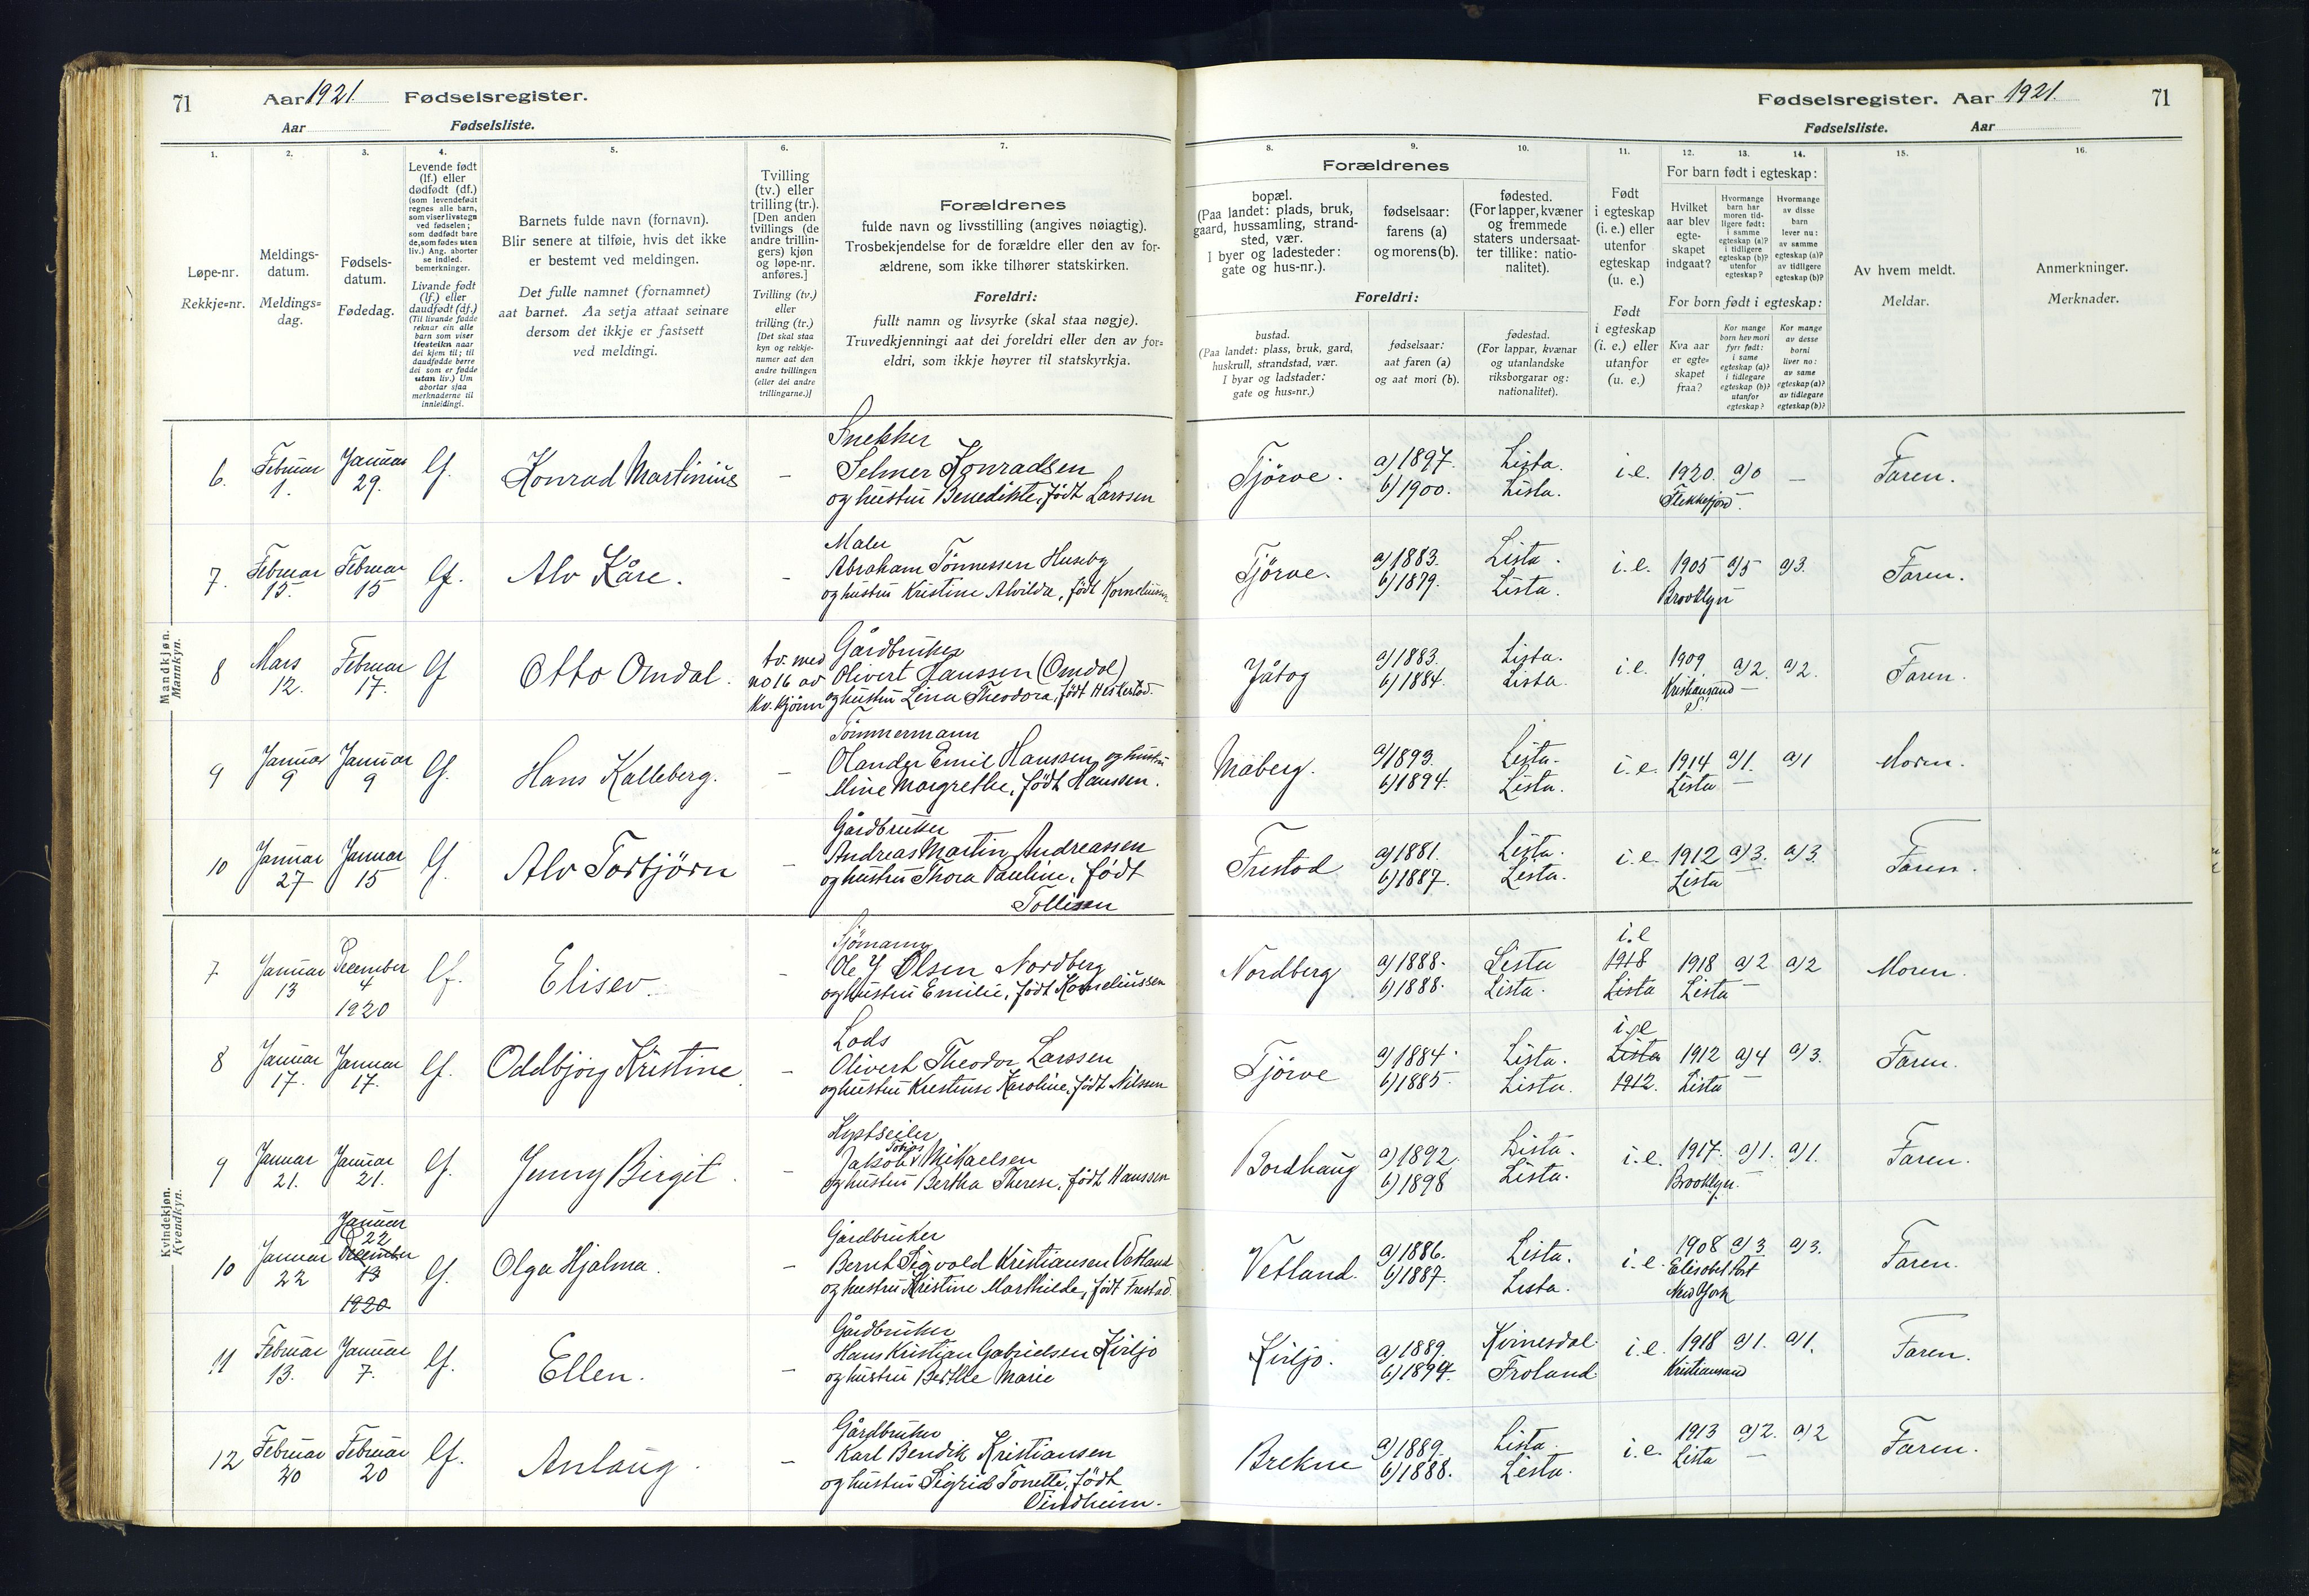 71 Aar 1921. Fødselsregister.
Aar Fødselsliste.
Fødselsregister. Aar 1921. 71
Fødselsliste. Aar
1. 2. 3. 4. 5. 6. 7.
Løpe-nr.
Rekkje=nr.
Meldings-
datum.
Meldings=
dag.
Fødsels-
datum.
Fødedag.
Levende født
(lf.) eller
dødfødt (df.)
(som levendefødt
regnes alle barn,
som viser livstegn
ved fødselen;
som dødfødt bare
de, som fødes uten
liv.) Ang. aborter
se indled.
bemerkninger.
Livande født
(lf.) eller
daudfødt (df.)
(Til livande fødde
reknar ein alle
barn som viser
livsteikn naar
dei kjem til; til
daudfødde berre
dei som er fødde
utan liv.) Um
abortar sjaa
merknaderne til
innleidingi.
Barnets fulde navn (fornavn).
Blir senere at tilføie, hvis det ikke
er bestemt ved meldingen.
Det fulle namnet (fornamnet)
aat barnet. Aa setja attaat seinare
dersom det ikkje er fastsett
ved meldingi.
Tvilling
(tv.) eller
trilling (tr.).
[Den anden
tvillings (de
andre trillin-
gers) kjøn
og løpe-nr.
anføres.]
Tvilling (tv.)
eller
trilling (tr.)
[Det skal staa
kyn og rekkje-
numer aat den
andre tvillingen
(eller dei andre
trillingarne.)]
Forældrenes
fulde navn og livsstilling (angives nøiagtig).
Trosbekjendelse for de forældre eller den av for-
ældrene, som ikke tilhører statskirken.
Foreldri:
fullt namn og livsyrke (skal staa nøgje).
Truvedkjenningi aat dei foreldri eller den av for=
eldri, som ikkje høyrer til statskyrkja.
8. 9. 10. 11. 12. 13. 14. 15. 16.
Forældrenes
bopæl.
(Paa landet: plads, bruk,
gaard, hussamling, strand-
sted, vær.
I byer og ladesteder:
gate og hus-nr.).
fødselsaar:
farens (a)
og morens (b).
fødested.
(For lapper, kvæner
og fremmede
staters undersaat-
ter tillike: natio-
nalitet).
Foreldri:
bustad.
(Paa landet: plass, bruk, gard,
huskrull, strandstad, vær.
I byar og ladstader:
gate og hus=nr.)
fødselsaar:
aat faren (a)
og aat mori (b).
fødestad.
(For lappar, kvænar
og utanlandske
riksborgarar og:
nationalitet).
Født
i egteskap
(i. e.) eller
utenfor
egteskap
(u. e.)
Født
i egteskap
(i. e.) eller
utanfor
(u. e.)
For barn født i egteskap:
Hvilket
aar blev
egte-
skapet
indgaat?
Hvormange
barn har
moren tid-
ligere født:
i samme
egteskap (a)?
i tidligere
egteskap (b)?
utenfor
egteskap?
Hvormange
av disse
barn
lever nu:
av samme
egteskap (a)?
av tidligere
egteskap (b)?
For born født i egteskap:
Kva aar
er egte=
skapet
fraa?
Kor mange
born hev mori
fyrr født:
i same
egteskap (a)?
i tidlegare
egteskap (b)?
utanfor
egteskap?
Kor mange
av desse
borni
liver no:
av same
egteskap (a)?
av tidlegare
egteskap (b)?
Av hvem meldt.
Meldar.
Anmerkninger.
Merknader.
Mandkjøn.
Mannkyn.
6. Februar 1. Januar 29. lf. Konrad Martinius –
Snekker
Selmer Konradsen
og hustru Benedikte, født Larssen
Tjörve. a) 1897. Lista. i.e. 1920. a) 0 – Faren.
b) 1900. Lista. Flekkefjord –
7. Februar 15. Februar 15 lf. Alv Kåre. –
Maler
Abraham Tönnessen Huseby
og hustru Kristine Alvilda, født Korneliussen
Tjörve. a) 1883. Lista. i.e. 1905 a) 5 a) 3. Faren.
b) 1879. Lista. Brooklyn
8 Mars 12. Februar 17. lf Otto Omdal.
tv. med
no 16 av
kv. kjönn
Gårdbruker
Olivert Hanssen (Omdal)
og hustru Lina Theodora, født Heskestad.
Jåtog a) 1883. Lista. i.e. 1909 a) 2. a) 2. Faren.
b) 1884. Lista. Kristiansand –
S.
9 Januar 9 Januar 9 lf. Hans Kalleberg. –
Tömmermann
Olander Emil Hanssen og hustru
Mine Margrethe, født Hanssen.
Måberg. a) 1893. Lista. i.e. 1914 a) 1. a) 1 Moren.
b) 1894. Lista. Lista –
10 Januar 27 Januar 15 lf. Alv Torbjörn –
Gårdbruker
Andreas Martin Andreassen
og hustru Thora Pauline, født
Tollisen
Frestad a) 1881. Lista. i.e. 1912 a) 3. a) 3. Faren.
b) 1887. Lista. Lista –
Kvindekjøn.
Kvendkyn.
7 Januar 13 December 4 1920 lf. Elisev. –
Sjömann
Ole J Olsen Nordberg
og hustru Emilie, født Korneliussen
i.e
Nordberg a) 1888. Lista 1918 1918 a) 2 a) 2 Moren.
b) 1888. Lista. Lista Lista –
8 Januar 17. Januar 17. lf. Oddbjörg Kristine. –
Lods
Olivert Theodor Larssen
og hustru Kristine Karoline, født Nilssen
i.e
Tjörve a) 1884. Lista. Lista 1912 a) 4 a) 3. Faren.
b) 1885. Lista. 1912. Lista –
9 Januar 21. Januar 21. lf. Jenny Birgit. –
Kystseiler
Tobias
Jakob Mikaelsen
og hustru Bertha Therese, født Hanssen
Bordhaug a) 1892. Lista. i.e. 1917. a) 1. a) 1. Faren.
b) 1898 Lista. Brooklyn. –
10 Januar 22 Januar 22 December 13 1920 lf. Olga Hjalma. –
Gårdbruker
Bernt Sigvald Kristiansen Vetland
og hustru Kristine Marthilde, født Frestad.
Vetland. a) 1886. Lista. i.e. 1908 a) 3 a) 3. Faren.
b) 1887. Lista. Elisabet Port
New York
11 Februar 13. Januar 7. lf. Ellen. –
Gårdbruker
Hans Kristian Gabrielsen Kviljo
og hustru Berthe Marie
Kviljo. a) 1889. Kvinesdal. i.e. 1918 a) 1. a) 1. Faren.
b) 1894. Froland Kristiansand
12 Februar 20 Februar 20 lf. Anlaug. –
Gårdbruker
Karl Bendik Kristiansen
og hustru Sigrid Tonette, født
Vindheim.
Brekne a) 1889. Lista. i.e. 1913 a) 2. a) 2 Faren.
b) 1888. Lista. Lista –